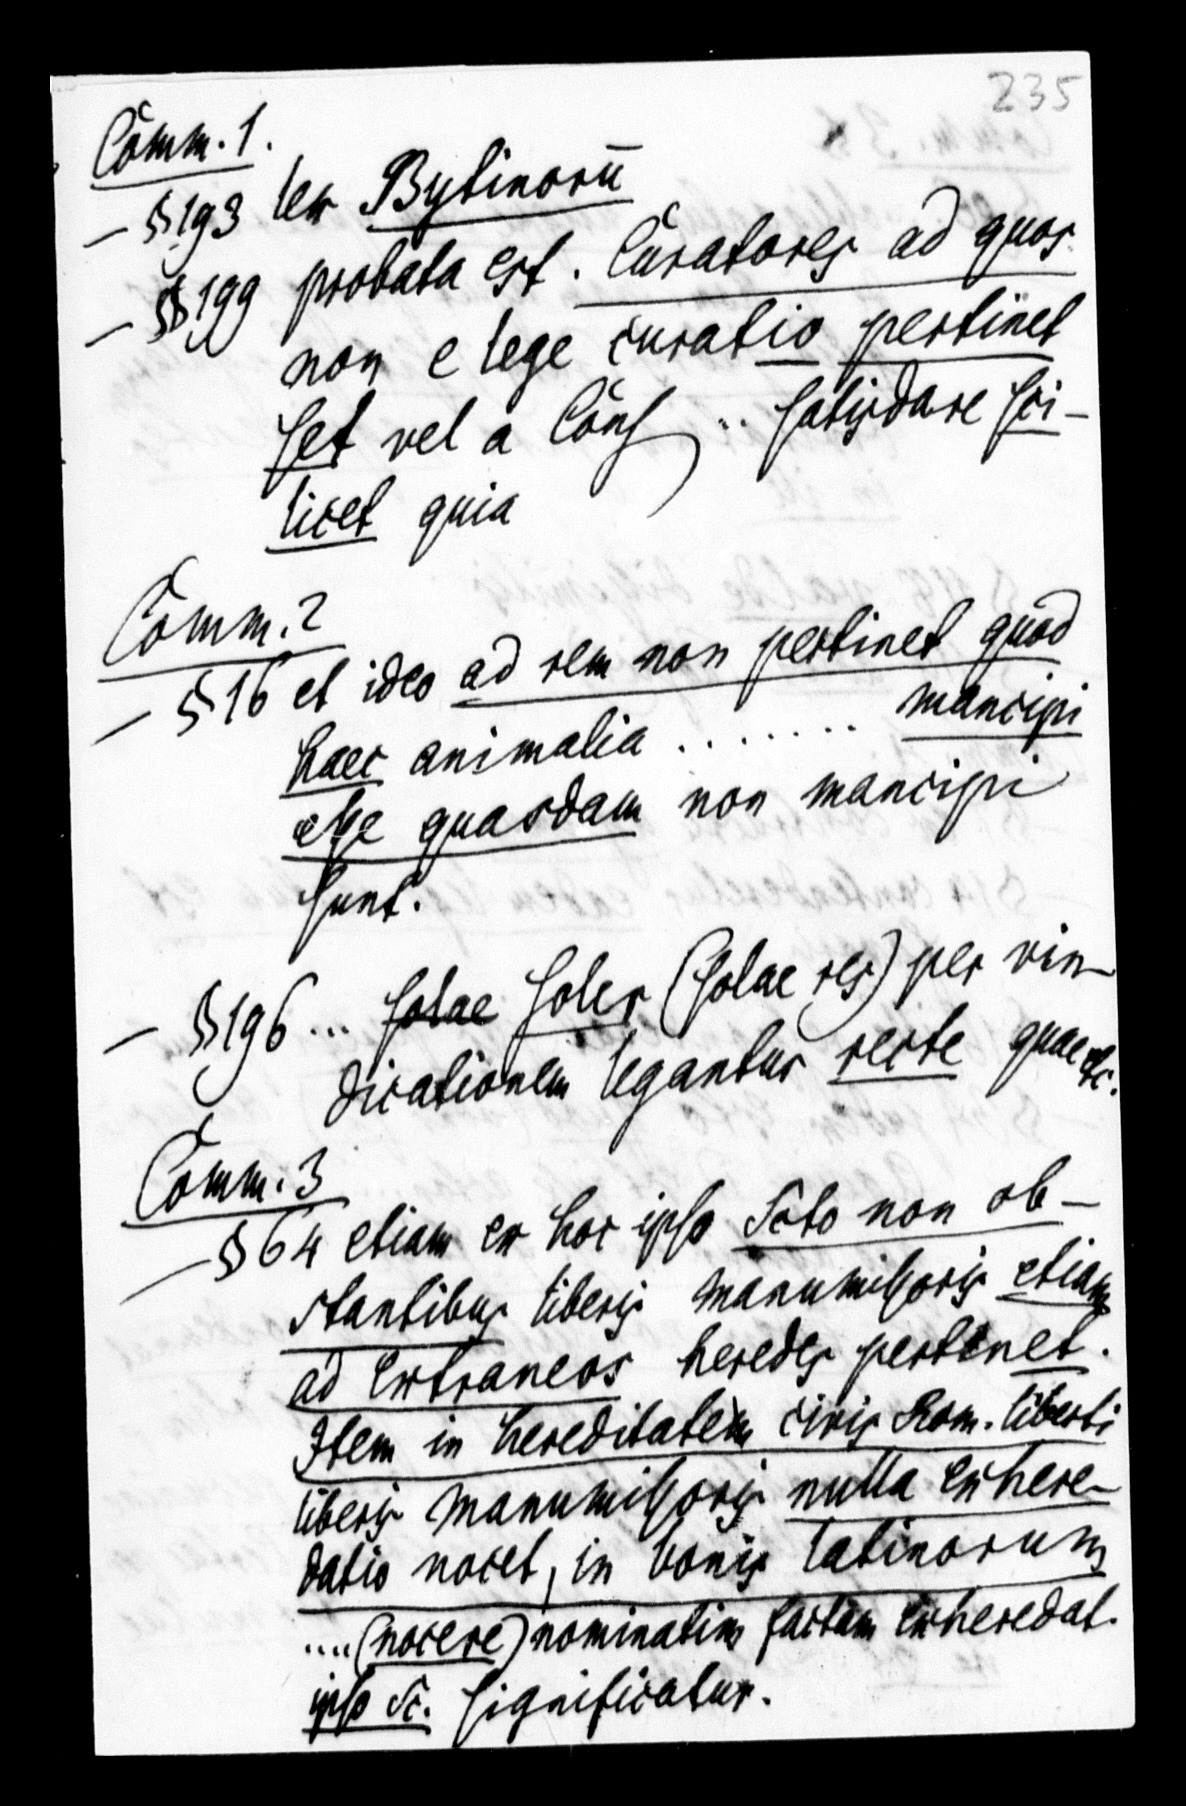 235
Comm. 1.
— § 193 lex Bytinorū
— § 199 probata est. Curatores ad quos
non e lege curatio pertinet
set vel a Cons .. satisdare sci-
licet quia
Comm. 2
— § 16 et ideo ad rem non pertinet quod
haec animalia ........ mancipi
esse quasdam non mancipi
sunt.
— § 196 ... solae soler (solae res) per vin-
dicationem legantur recte quae etc.
Comm. 3
— § 64 etiam ex hoc ipso Scto non ob-
stantibus liberis manumissoris etiam
ad extraneos heredes pertinet.
Item in hereditatem civis Rom. liberti
liberis manumissoris nulla exhere-
datio nocet, in bonis latinorum
.... (nocere) nominatim factam exheredat.
ipso Sc. significatur.